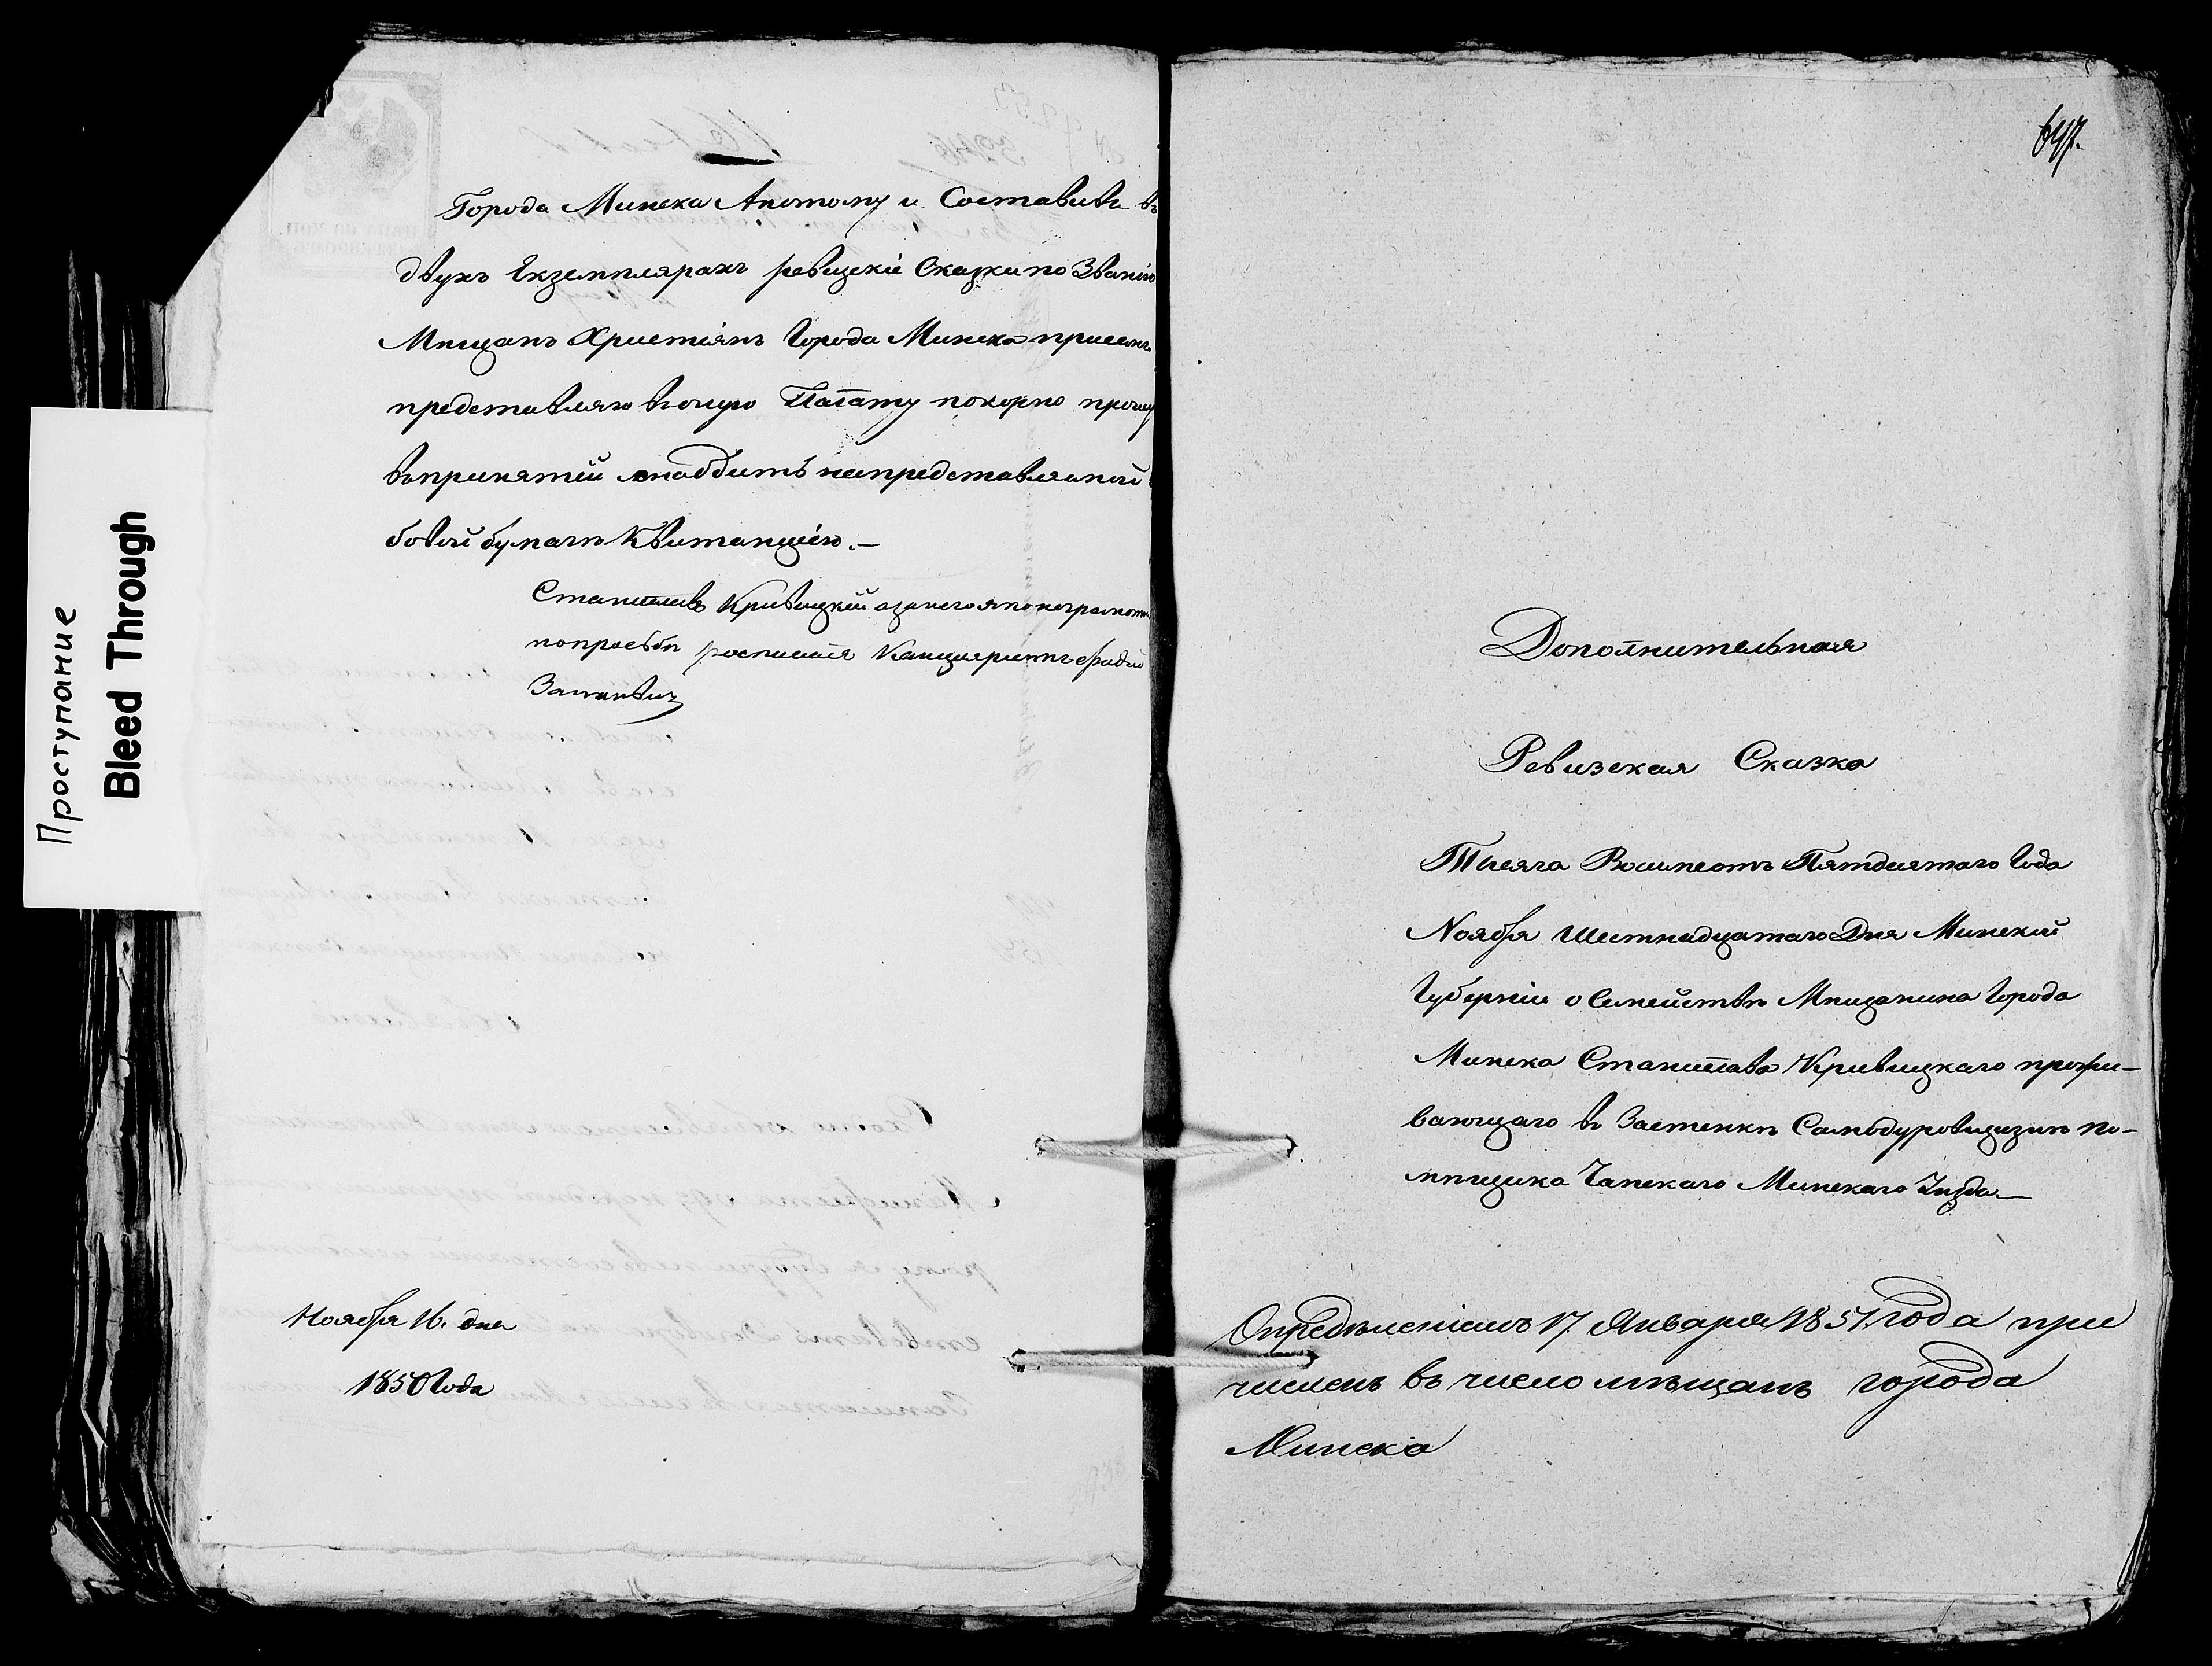 Проступание
Bleed Through
Города Минска Апотому и Составивъ въ
двухъ Екземплярахъ ревизскіе Сказки по Званію
Мѣщанъ Христіянъ Города Минска присемъ
представляю въ оную Палату покорно прошу
въ принятіи снабдить непредставляемой
бовой бумагѣ Квитанціею.—
Станиславъ Кривицкій а за него
по прозьбѣ росписался Канцеляристъ
Ноября 16. дня
1850 Года
647.
Дополнительная
Ревизская Сказка
Тысяча Восимсотъ Пятдесятаго Года
Ноября Шестнадцатаго Дня Минской
Губерніи о Семействѣ Мѣщанина Города
Минска Станислава Кривицкаго прожи-
вающаго въ Застенкѣ Самодуровщизнѣ по-
мѣщика Чапскаго Минскаго Уѣзда—
Опредѣленіемъ 17 Января 1851 года при
численъ въ число мѣщанъ города
Минска